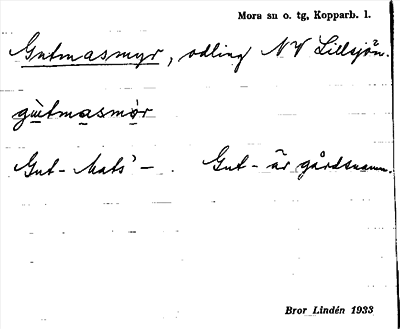 Mora sn o. tg, Kopparb. l.
Gutmasmyr, odling NV Lillsjön.
gùtmasmỳr
Gut-Mats' - . Gut- är gårdsnamn.
Bror Lindén 1933